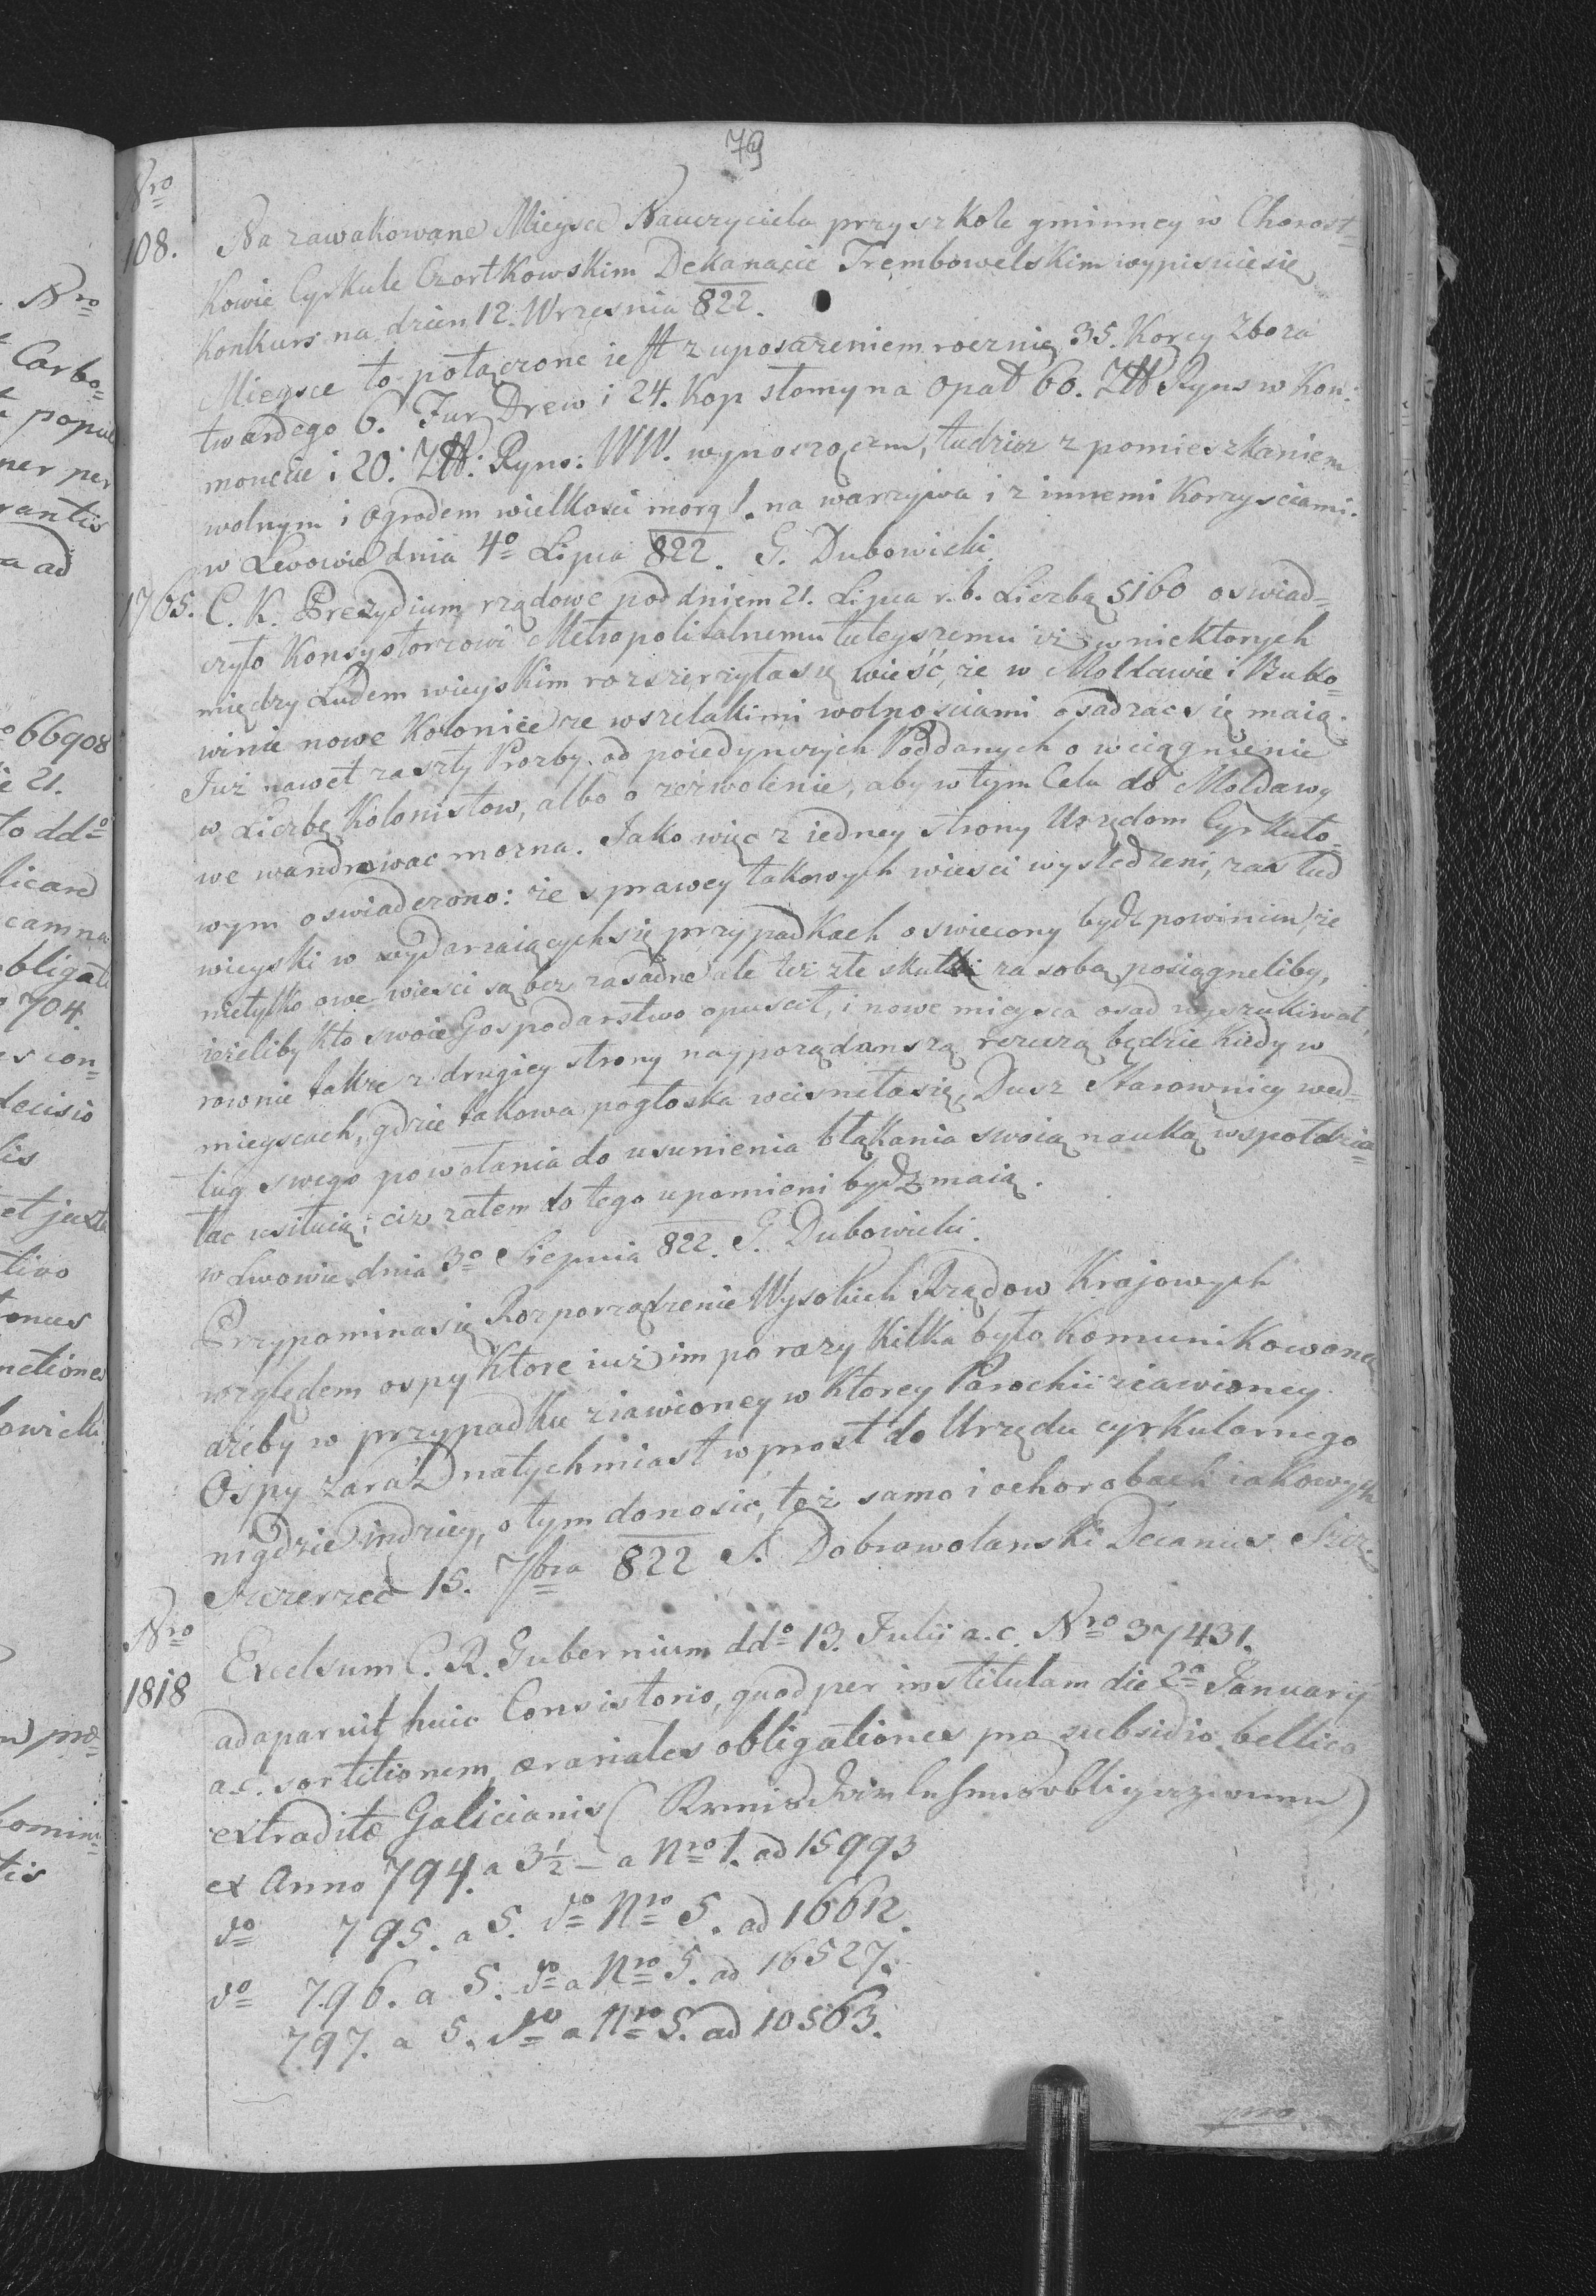 79
Nro
108. Na zawakowane Mieysce Nauczyciela przy szkole gminney w Chorost=
kowie Cyrkule Czortkowskim Dekanacie Trembowelskim wypisuie się
Konkurs na dzien 12. Wrzesnia 822.
Mieysce to połączone iest z uposazeniem rocznie 35. Korcy zboza
twardego 6. Fur Drew i 24. Kop słomy na Opał 60. Zł Ryns w Kon:
moncie i 20. Zł: Ryns: WW. wynoszącem, tudziez z pomieszkaniem
wolnym i Ogrodem wielkosci morg 1. na warzywa i z innemi Korzysciami.
w Lwowie dnia 4o Lipca 822. G. Dubowicki
1765. C. K. Prezydium rządowe pod dniem 21. Lipca r. b. Liczbą 5160 oswiad=
czyło Konsystorzowi Metropolitalnemu tuteyszemu iż w niektorych
między Ludem wieyskim rozszerzyła się wieść, że w Moldawie i Buko=
winie nowe Kolonije ze wszelakimi wolnosciami osadzac się maią.
Już nawet zaszły Prozby od poiedynczych Poddanych o wciągnienie
w Liczbę Kolonistow, albo o zezwolenie, aby w tym Celu do Moldawy
we wandrowac mozna. Jako więc z iedney strony Urzędom Cyrkuło=
wym oswiadczono: że sprawcy takowych wiesci wysledzeni, zas lud
wieyski w wydarzaiących się przypadkach oswiecony bydź powinien, że
nietylko owe wiesci są bez zasadne ale też złe skutki za sobą posiągneliby,
ieżeliby kto swoie Gospodarstwo opuscił, i nowe mieysca osad wyszukiwał,
rownie także z drugiey strony nayporządanszą rzeczą będzie kiedy w
mieyscach, gdzie takowa pogłoska wcisneła się, Dusz Starownicy wed=
ług swego powołania do usunienia błąkania swoią nauką wspołdzia=
łac usiłuią; ciż zatem do tego upomieni bydź maią.
w Lwowie dnia 3o Sierpnia 822. G. Dubowicki.
Przypomina się Rozporządzenie Wysokich Rządow Krajowych
względem ospy które iuż im po razy kilka było komunikowone
ażeby w przypadku ziawioney w ktorey Parochii ziawioney
Ospy zaraz natychmiast wprost do Urzędu cyrkularnego
nigdzie indziey, o tym donosic, toż samo i ochorobach iakowych
Szczerzec 15. 7bra 822 S. Dobrowolanski Decanus Szcz.
Nro
1818 Excelsum C. R. Gubernium ddo 13. Julii a.c. Nro 37431.
adaparuit huic Consistorio, quod per institutam die 2a Januarij
a.c. sortitionem, ærariales obligationes pro subsidio bellico
extraditæ Galicianis (
ex Anno 794. a 3½ – a Nro 1. ad 15993
do 795. a 5. do Nro 5. ad 16612.
do 796. a 5. do a Nro 5. ad 16527.
797. a 5. do a Nro 5. ad 10563.
pro